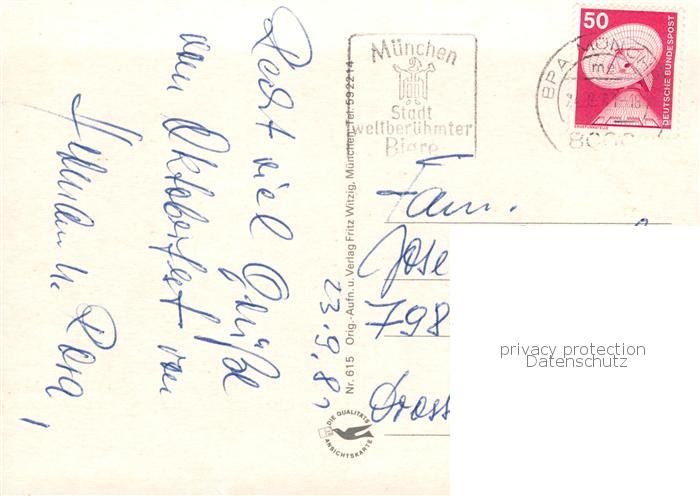 Recht viel Grüße
vom Oktoberfest von
23.9.81
Nr. 615 Orig.-Aufn. u. Verlag Fritz Witzig, München Tel. 592214
DIE QUALITÄTS
ANSICHTSKARTE
München
Stadt
weltberühmter
Biere
BPA MÜNCH
8000
50
DEUTSCHE BUNDESPOST
Fam.
Jose
798
privacy protection
Datenschutz